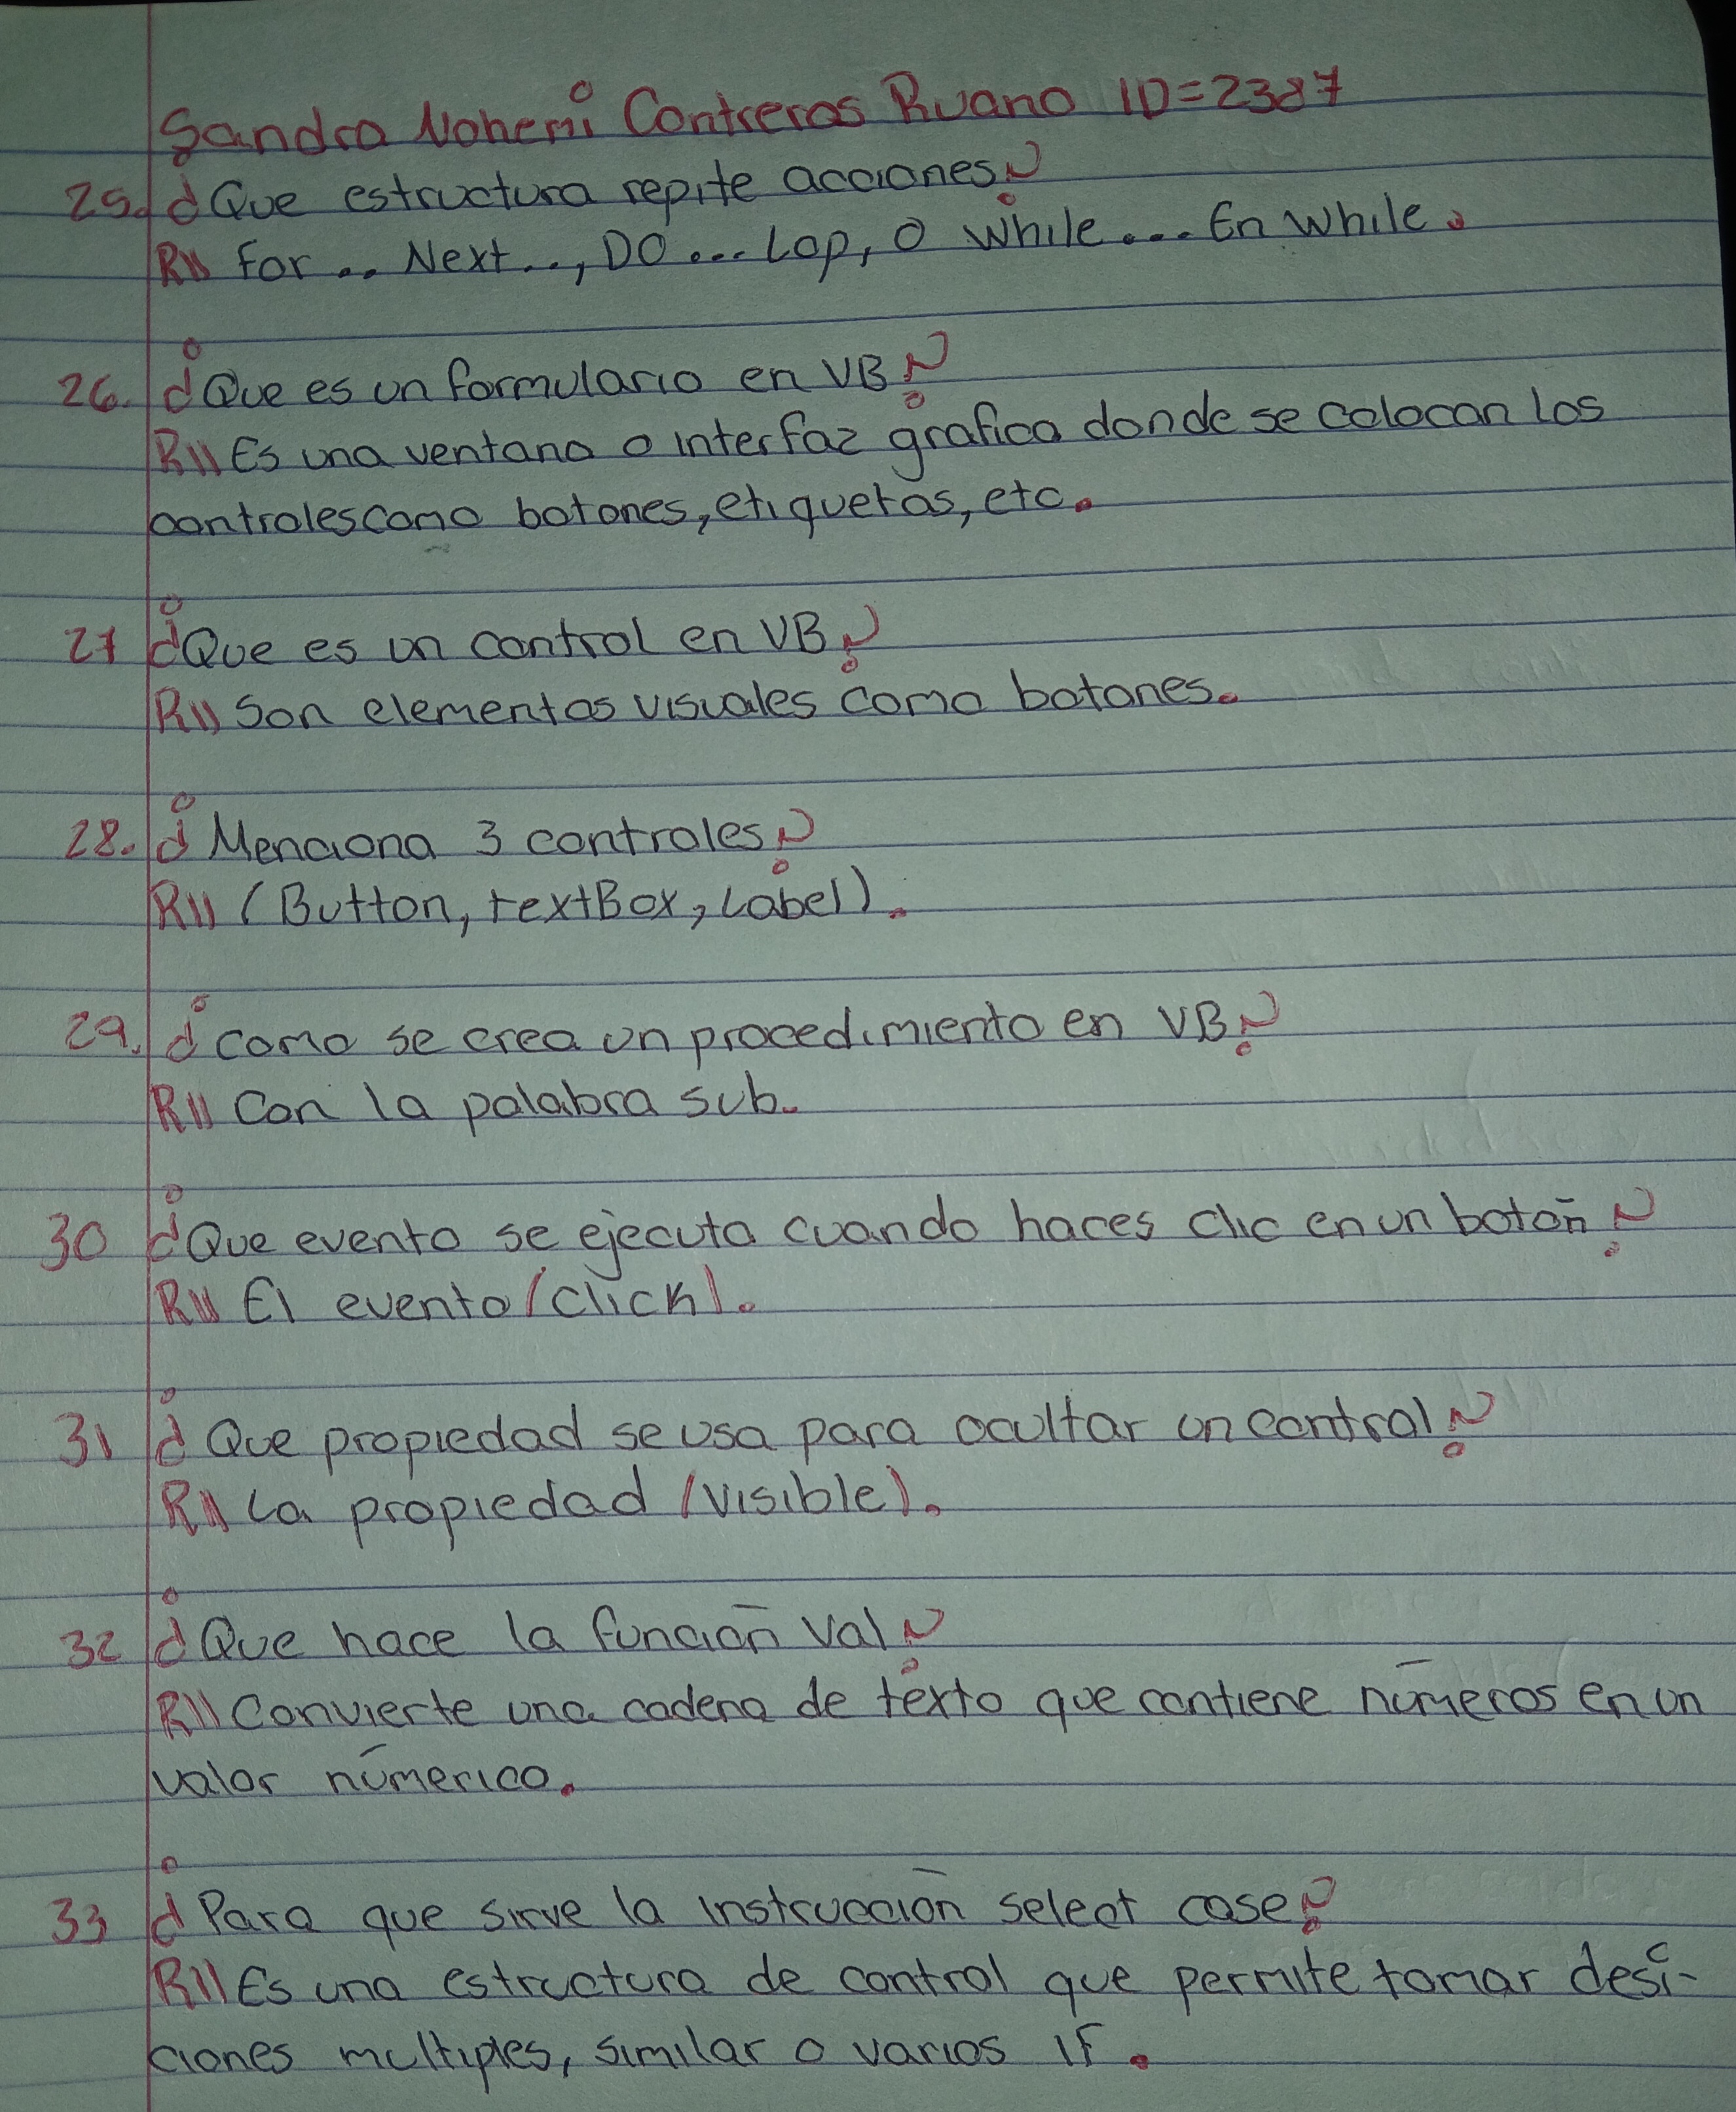 Sandra Nohemi Contreras Ruano ID=2387
25. ¿Que estructura repite acciones?
R// For... Next..., DO... Lop, O While... En While.
26. ¿Que es un formulario en VB?
R// Es una ventana o interfaz grafica donde se colocan los
controles como botones, etiquetas, etc.
27 ¿Que es un control en VB?
R// Son elementos visuales como botones.
28. ¿Menciona 3 controles?
R// (Button, textBox, Label).
29. ¿como se crea un procedimiento en VB?
R// Con la palabra sub.
30 ¿Que evento se ejecuta cuando haces clic en un botón?
R// El evento (click).
31 ¿Que propiedad se usa para ocultar un control?
R// La propiedad (visible).
32 ¿Que hace la función Val?
R// Convierte una cadena de texto que contiene números en un
valor númerico.
33 ¿Para que sirve la instrucción select case?
R// Es una estructura de control que permite tomar desi-
ciones multiples, similar a varios IF.